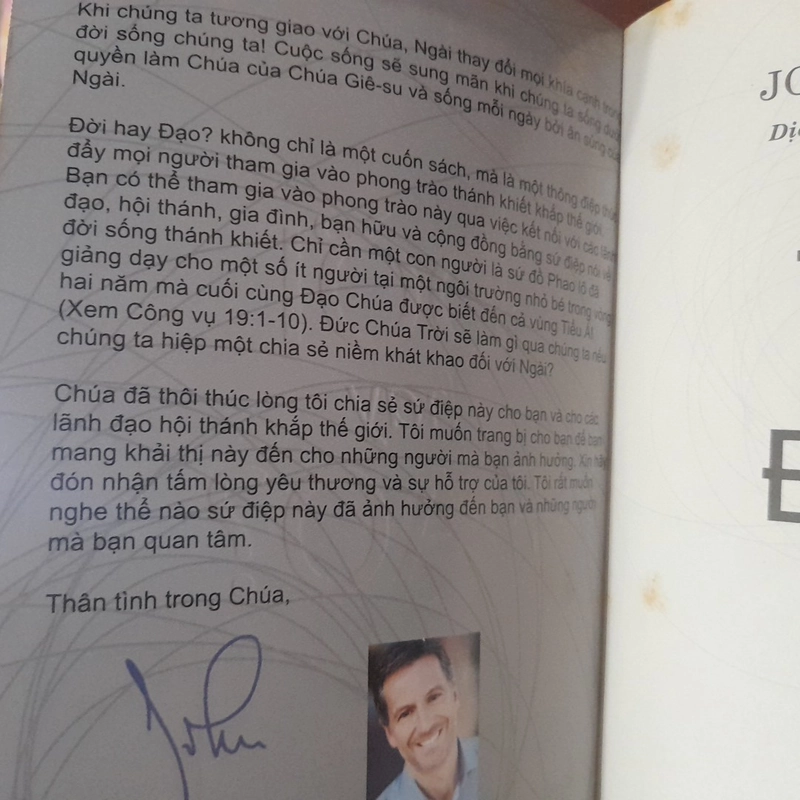 Khi chúng ta tương giao với Chúa, Ngài thay đổi mọi khía cạnh trong
đời sống chúng ta! Cuộc sống sẽ sung mãn khi chúng ta sống dưới
quyền làm Chúa của Chúa Giê-su và sống mỗi ngày bởi ân sủng của
Ngài.
Đời hay Đạo? không chỉ là một cuốn sách, mà là một thông điệp thúc
đẩy mọi người tham gia vào phong trào thánh khiết khắp thế giới.
Bạn có thể tham gia vào phong trào này qua việc kết nối với các lãnh
đạo, hội thánh, gia đình, bạn hữu và cộng đồng bằng sứ điệp nói về
đời sống thánh khiết. Chỉ cần một con người là sứ đồ Phao lô đã
giảng dạy cho một số ít người tại một ngôi trường nhỏ bé trong vòng
hai năm mà cuối cùng Đạo Chúa được biết đến cả vùng Tiểu Á!
(Xem Công vụ 19:1-10). Đức Chúa Trời sẽ làm gì qua chúng ta nếu
chúng ta hiệp một chia sẻ niềm khát khao đối với Ngài?
Chúa đã thôi thúc lòng tôi chia sẻ sứ điệp này cho bạn và cho các
lãnh đạo hội thánh khắp thế giới. Tôi muốn trang bị cho bạn để bạn
mang khải thị này đến cho những người mà bạn ảnh hưởng. Xin hãy
đón nhận tấm lòng yêu thương và sự hỗ trợ của tôi. Tôi rất muốn
nghe thể nào sứ điệp này đã ảnh hưởng đến bạn và những người
mà bạn quan tâm.
Thân tình trong Chúa,
John
JO
Dịc
Đ